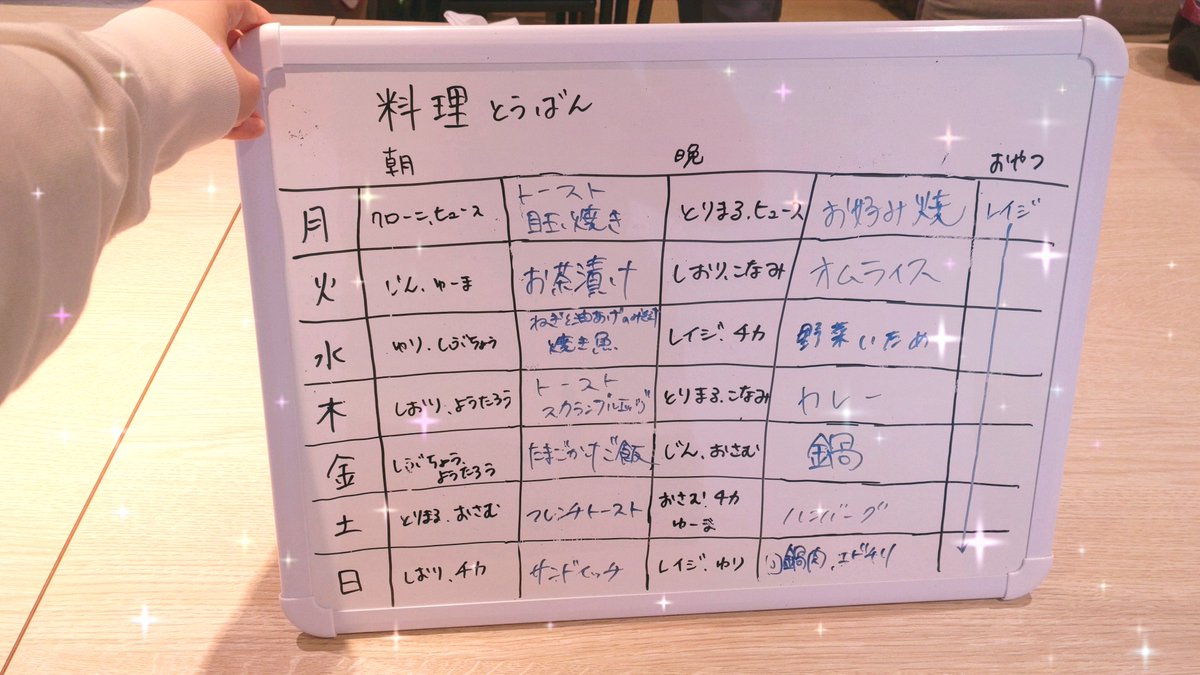 料理とうばん
朝 晩 おやつ
月 クローニ、ヒュース トースト 目玉焼き とりまる、ヒュース お好み焼 レイジ
火 じん、ゆーま お茶漬け しおり、こなみ オムライス
水 ゆり、しぶちょう ねぎと油あげの 焼き魚 レイジ、チカ 野菜いため
木 しおり、ようたろう トースト スクランブルエッグ とりまる、こなみ カレー
金 しぶちょう、ようたろう たまごかけご飯 じん、おさむ 鍋
土 とりまる、おさむ フレンチトースト おさむ、チカ ゆーま ハンバーグ
日 しおり、チカ サンドイッチ レイジ、ゆり 鍋肉、エビチリ